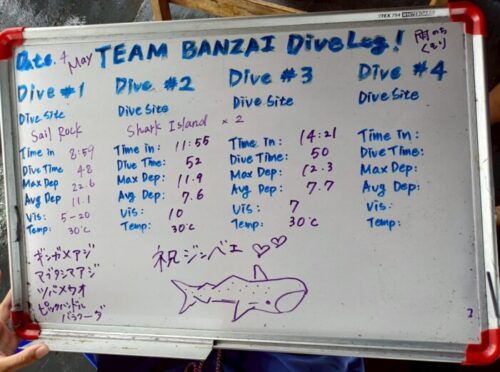 TEX 754 WHITEBOARD
Date. 4 May TEAM BANZAI DiveLog! 雨のち くもり
Dive #1
Dive Site
Sail Rock
Time in 8:59
Dive Time 48
Max Dep 22.6
Avg Dep 11.1
Vis: 5-20
Temp: 30℃
ギンガメアジ
マブタシマアジ
ツバメウオ
ピックハンドル
バラクーダ
Dive #2
Dive Site
Shark Island × 2
Time in: 11:55
Dive Time: 52
Max Dep: 11.9
Avg Dep: 7.6
Vis: 10
Temp: 30℃
祝ジンベエ ♡♡
Dive #3
Dive Site
Time in: 14:21
Dive Time: 50
Max Dep: 12.3
Avg Dep: 7.7
Vis: 7
Temp: 30℃
Dive #4
Dive Site
Time in:
Dive Time:
Max Dep:
Avg Dep:
Vis:
Temp: